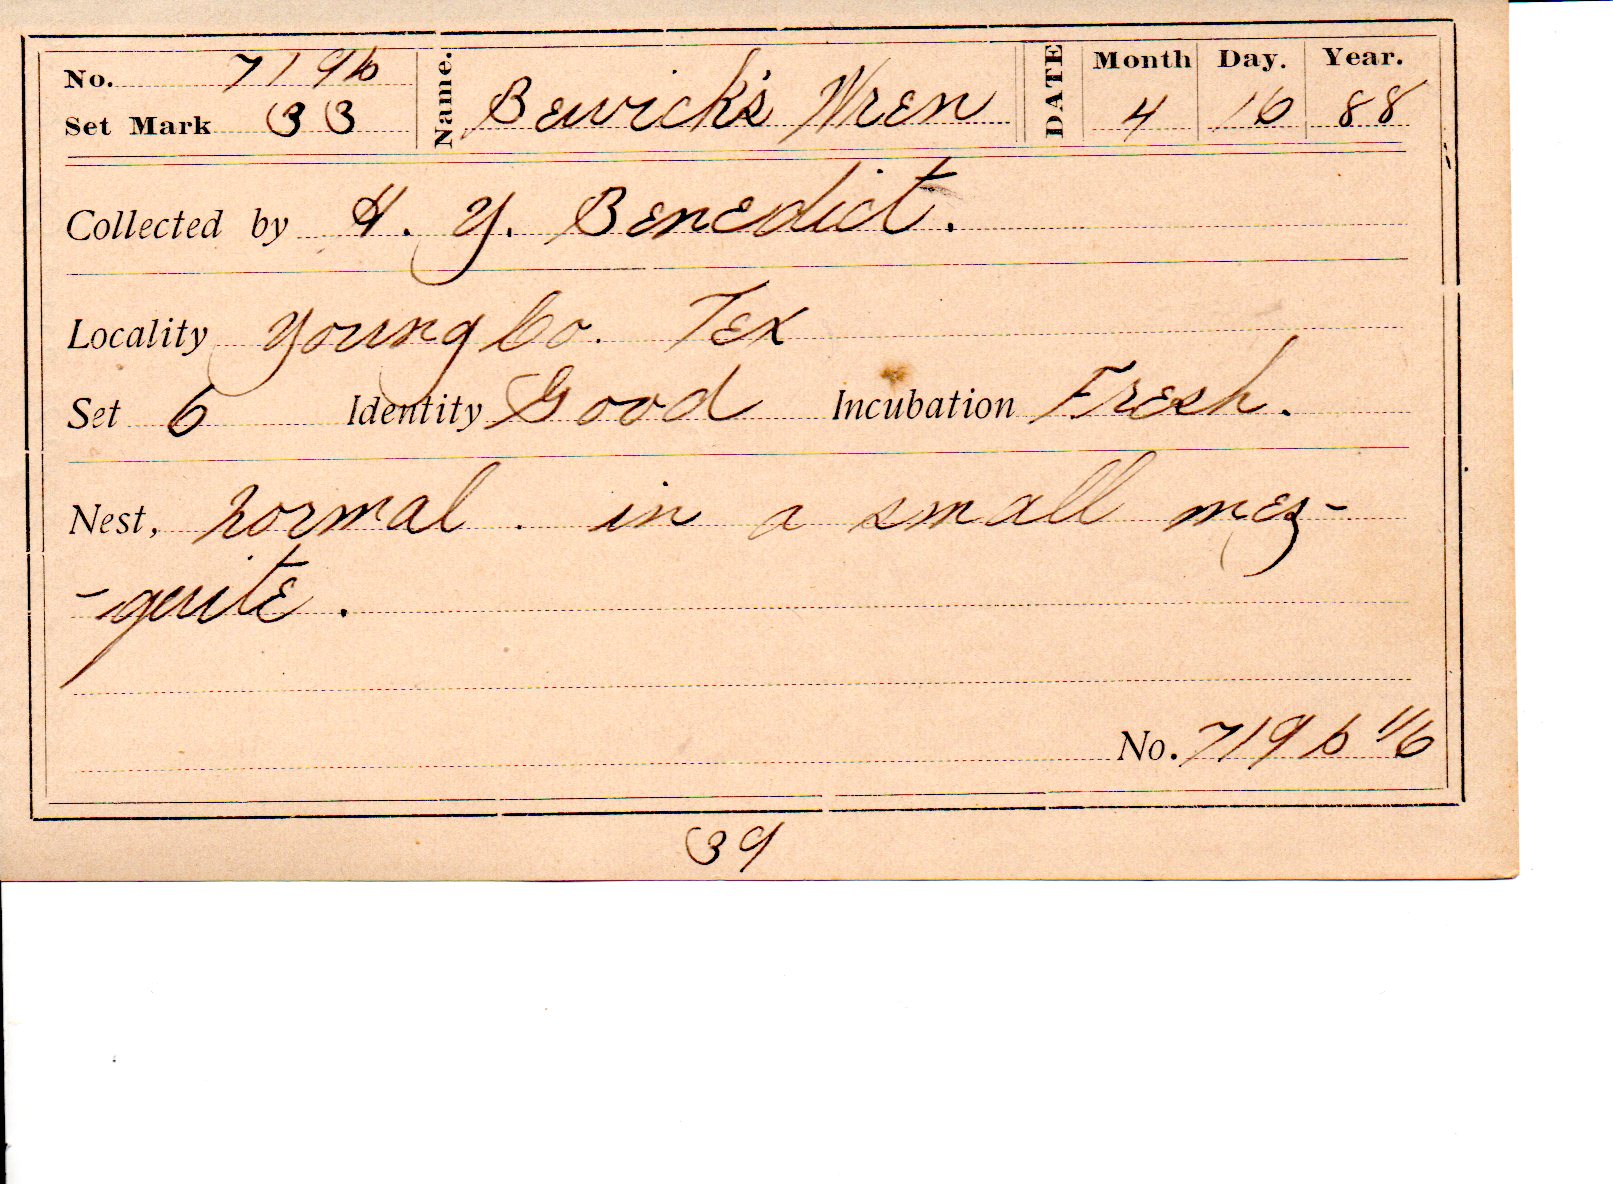 No. 719b Name. Bewick's Wren DATE Month Day. Year.
Set Mark 33 4 16 88
Collected by H. Y. Benedict.
Locality Young Co. Tex
Set 6 Identity Good Incubation Fresh.
Nest, normal. in a small mez-
-quite.
No. 719b 1/6
39